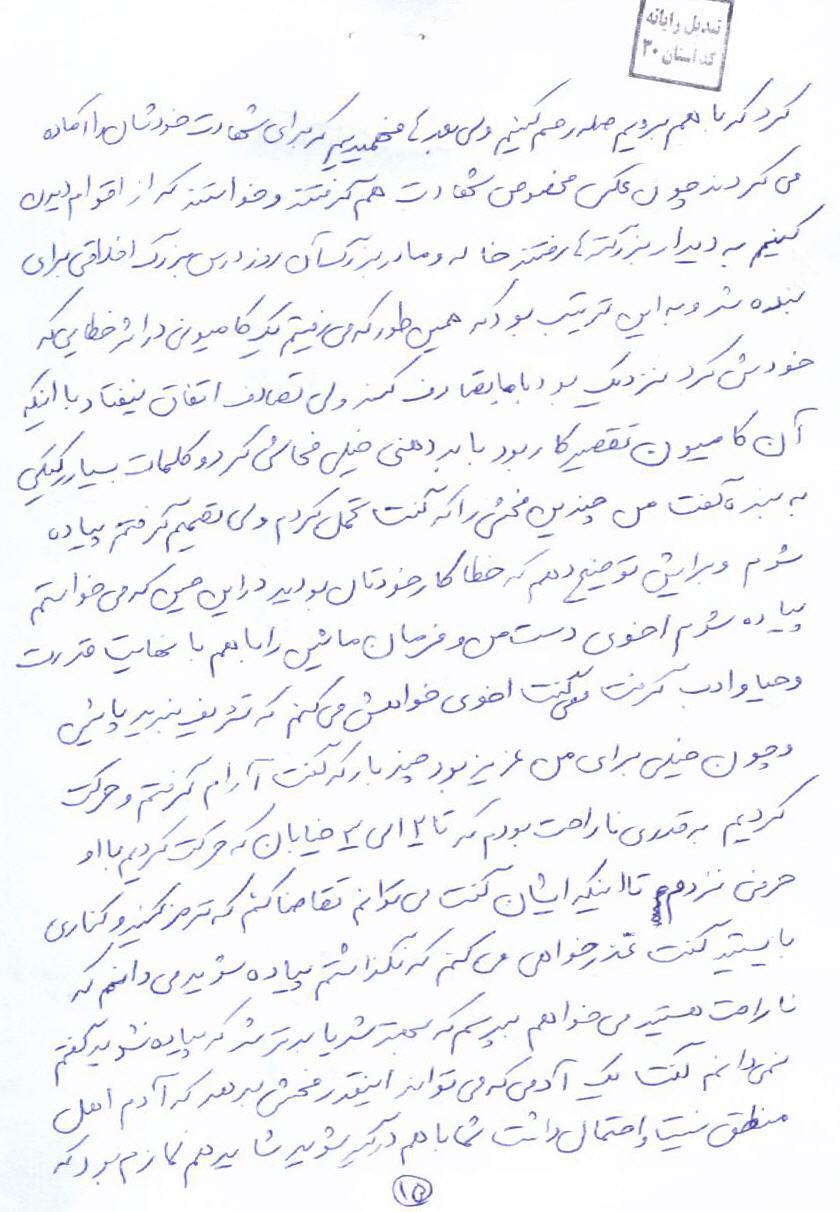 تبدیل رایانه
کد استان ۳۰
کرد که با هم برویم صله رحم کنیم ولی بعدها فهمیدیم که برای شهادت خودشان را آماده
می کردند چون عکس مخصوص شهادت هم گرفتند و خواستند که از اقوام دیدن
کنیم به دیدار بزرگترها رفتند خاله و مادربزرگ آن روز درس بزرگ اخلاقی برای
بنده شد و به این ترتیب بود که همین طور که می رفتیم یک کامیونی در اثر خطایی که
خودش کرد نزدیک بود با ما تصادف کند ولی تصادف اتفاق نیفتاد با اینکه
آن کامیون تقصیر کار بود با بد دهنی خیلی فحاشی کرد و کلمات بسیار رکیکی
به بنده گفت من چندین فحش را که گفت تحمل کردم ولی تصمیم گرفتم پیاده
شوم و برایش توضیح دهم که خطا کار خودتان بودید در این حین که می خواستم
پیاده شوم اخوی دست من و فرمان ماشین را با هم با نهایت قدرت
و حیا و ادب گرفت گفت اخوی خواهش می کنم که تشریف نبرید پائین
و چون خیلی برای من عزیز بود چند بار که گفت آرام گرفتم و حرکت
کردیم به قدری ناراحت بودم که تا ۲ الی ۳ خیابان که حرکت کردیم با او
حرفی نزدم تا اینکه ایشان گفت می توانم تقاضا کنم که ترمز کنید و کناری
بایستید گفت عذرخواهی می کنم که نگذاشتم پیاده شوید می دانم که
ناراحت هستید می خواهم بپرسم که بهتر شد یا بدتر شد که پیاده نشوید گفتم
نمی دانم گفت یک آدمی که می تواند اینقدر فحش بدهد که آدم اهل
منطق نیست و احتمال داشت شما با هم درگیر شوید شاید هم لازم بود که
۱۵